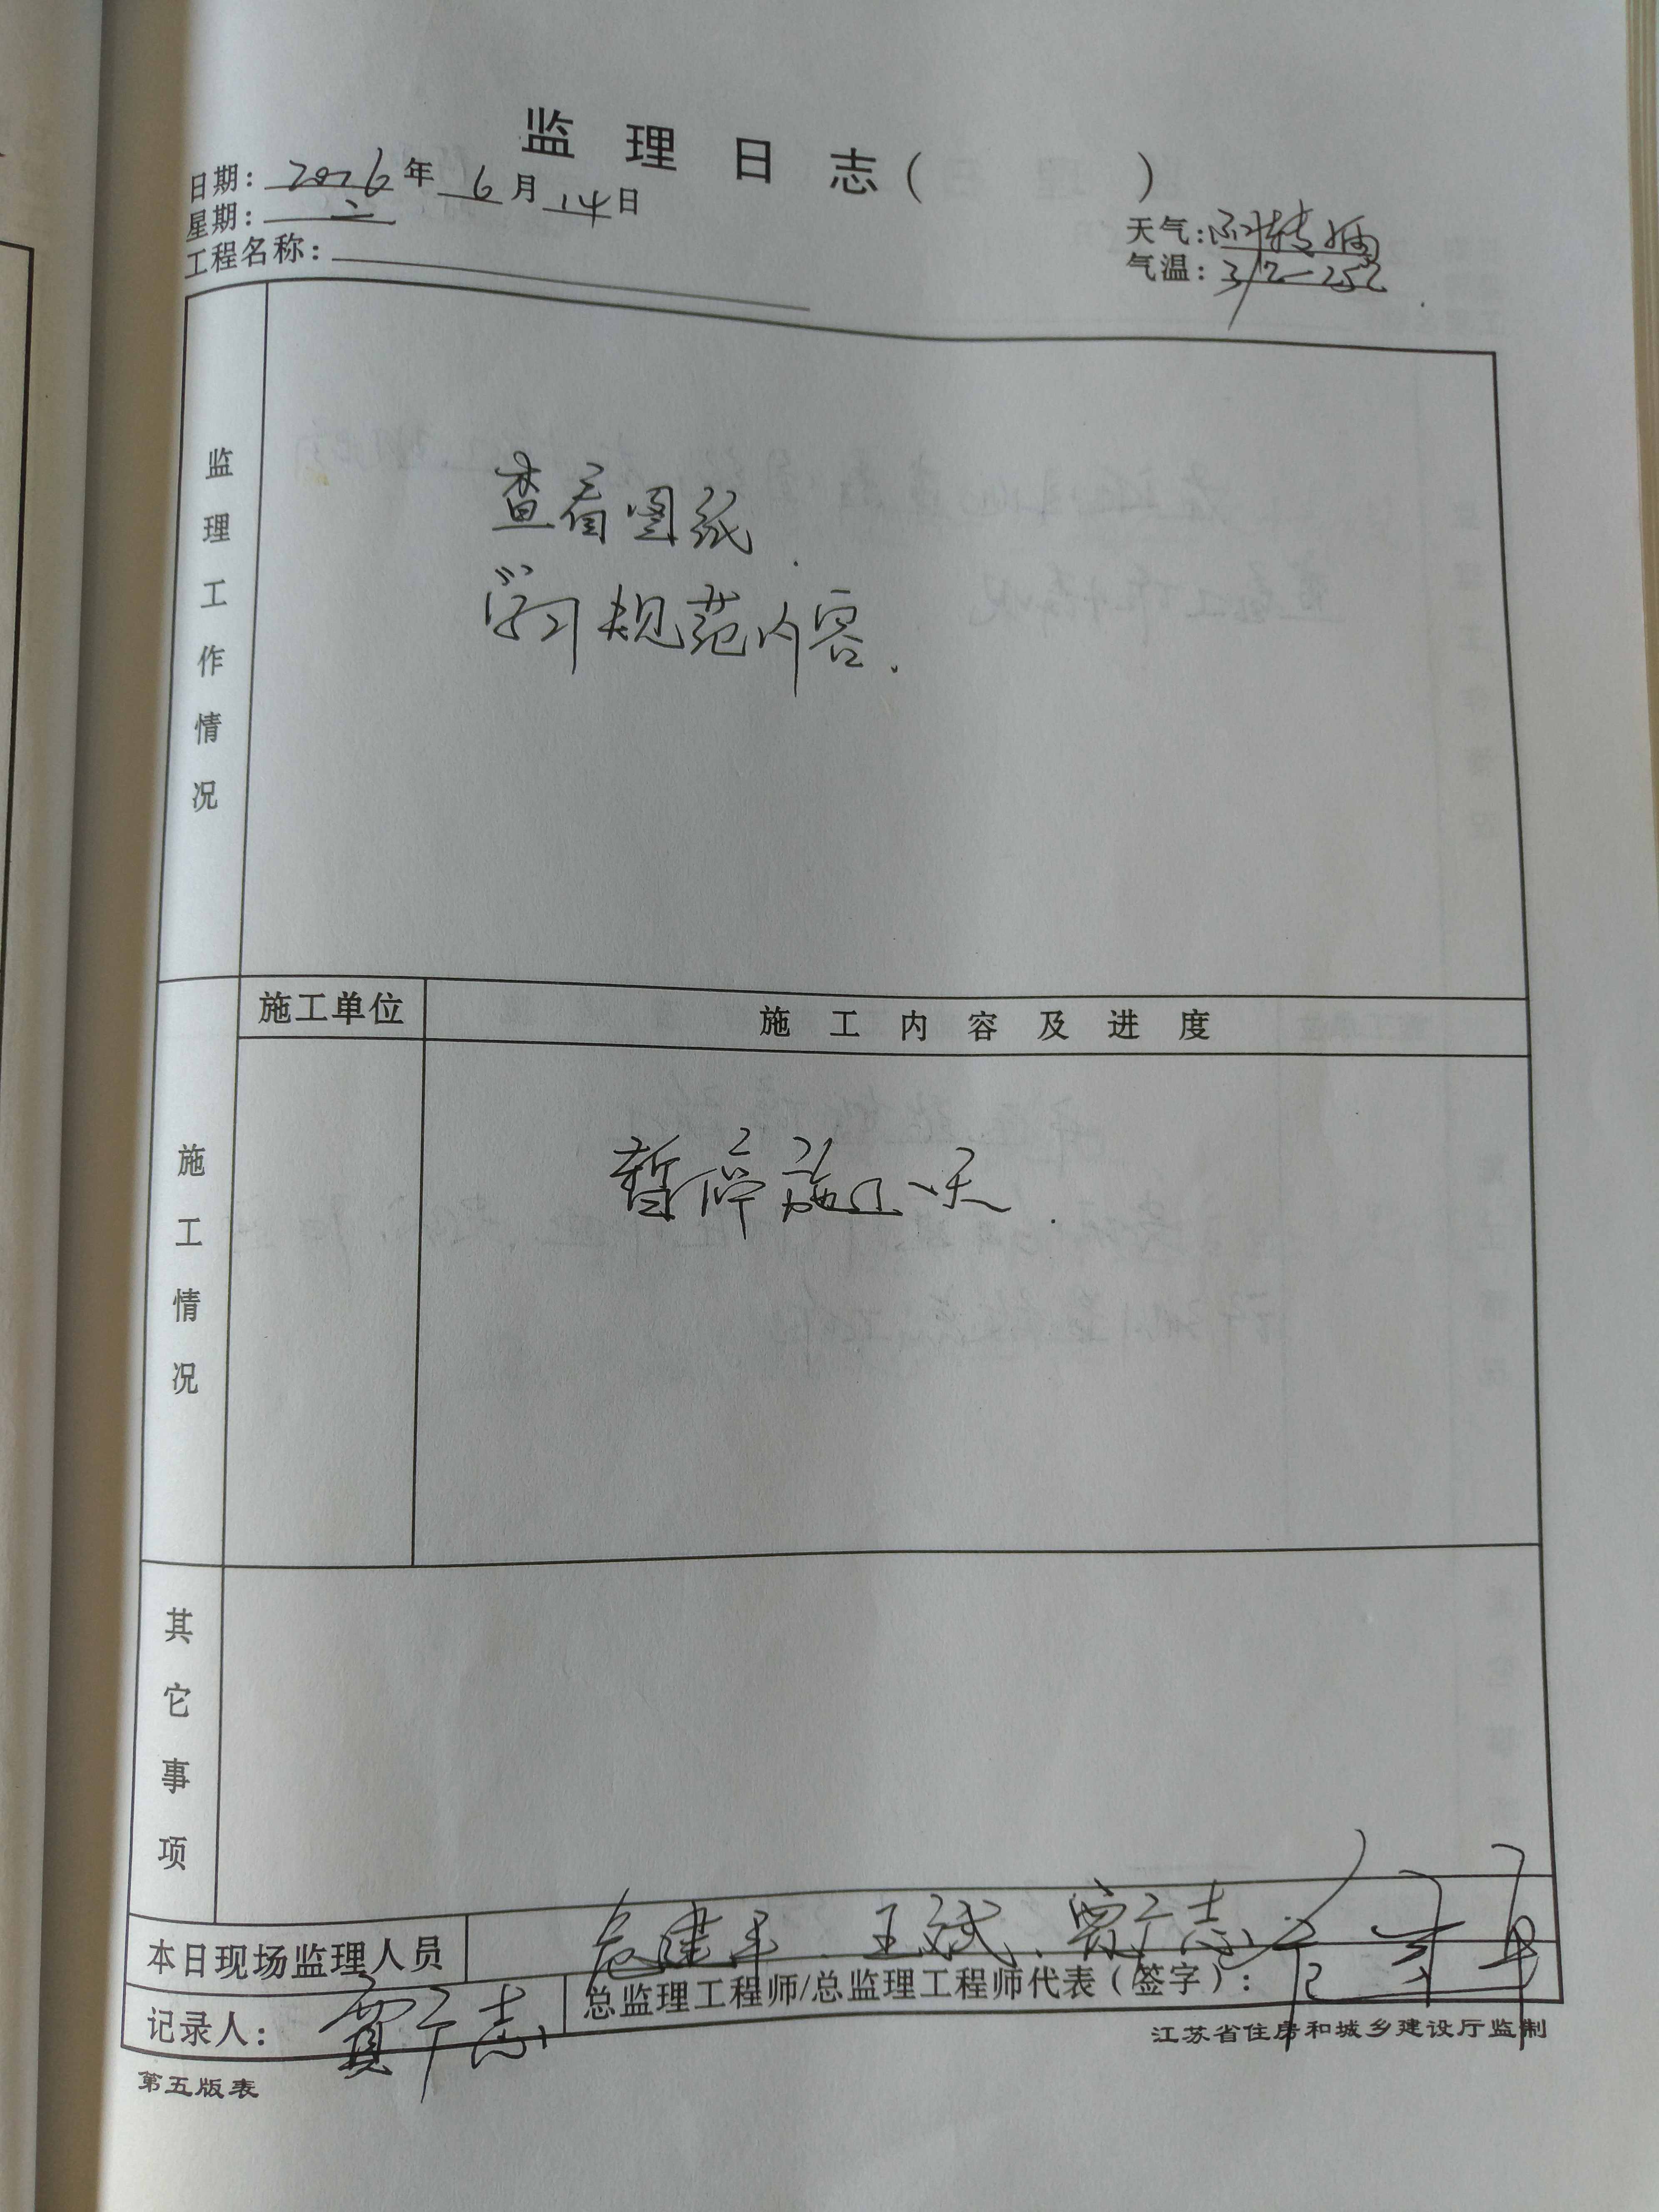 监理日志(　　)
日期: 2026年 6月 14日
星期: 二
天气: 阴转
气温:
工程名称:
监理工作情况
查看图纸.
学习规范内容.
施工单位 施工内容及进度
施工情况
暂停施工一天.
其它事项
本日现场监理人员 王斌、贾广志
记录人: 贾广志 总监理工程师/总监理工程师代表(签字):
江苏省住房和城乡建设厅监制
第五版表